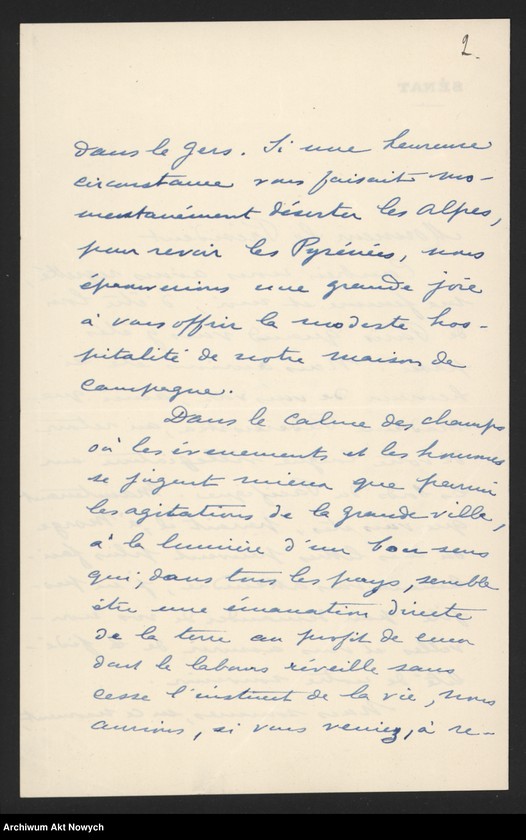 2.
SÉNAT
dans le Gers. Si une heureuse
circonstance vous faisait mo-
mentanément déserter les Alpes,
pour revoir les Pyrénées, nous
éprouverions une grande joie
à vous offrir la modeste hos-
pitalité de notre maison de
campagne.
Dans le calme des champs
où les évènements et les hommes
se jugent mieux que parmi
les agitations de la grande ville,
à la lumière d'un bon sens
qui, dans tous les pays, semble
être une émanation directe
de la terre au profit de ceux
dont le labour réveille sans
cesse l'instinct de la vie, nous
aurions, si vous veniez, à re-
Archiwum Akt Nowych